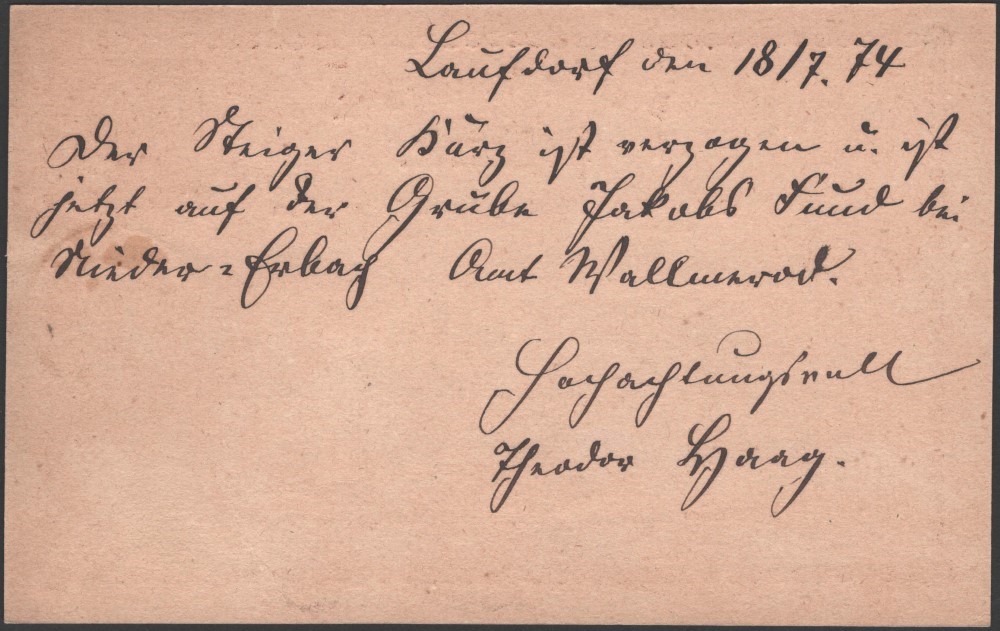 Laufdorf den 18/7. 74
Der Steiger Kürz ist verzogen u. ist
jetzt auf der Grube Jakobs Fund bei
Nieder-Erbach Amt Wallmerod.
Hochachtungsvoll
Theodor Haag.